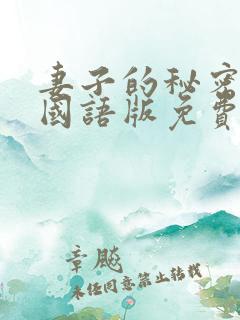 妻子的秘密
國語版免費
章飈
未经同意禁止转载